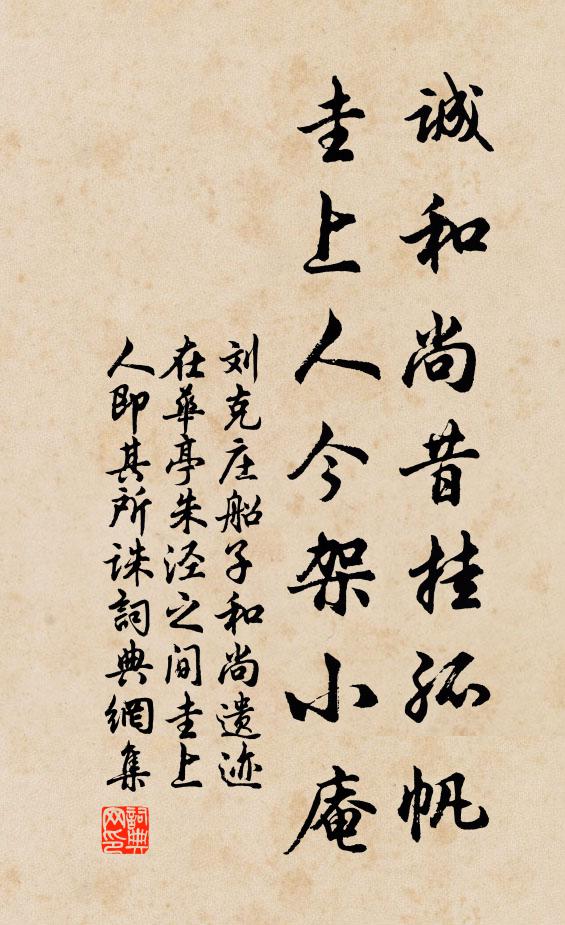 誠和尚昔挂孤帆
圭上人今架小庵
刘克庄船子和尚遗迹
在華亭朱泾之间圭上
人即其所诛詞典網集
詞典
网印